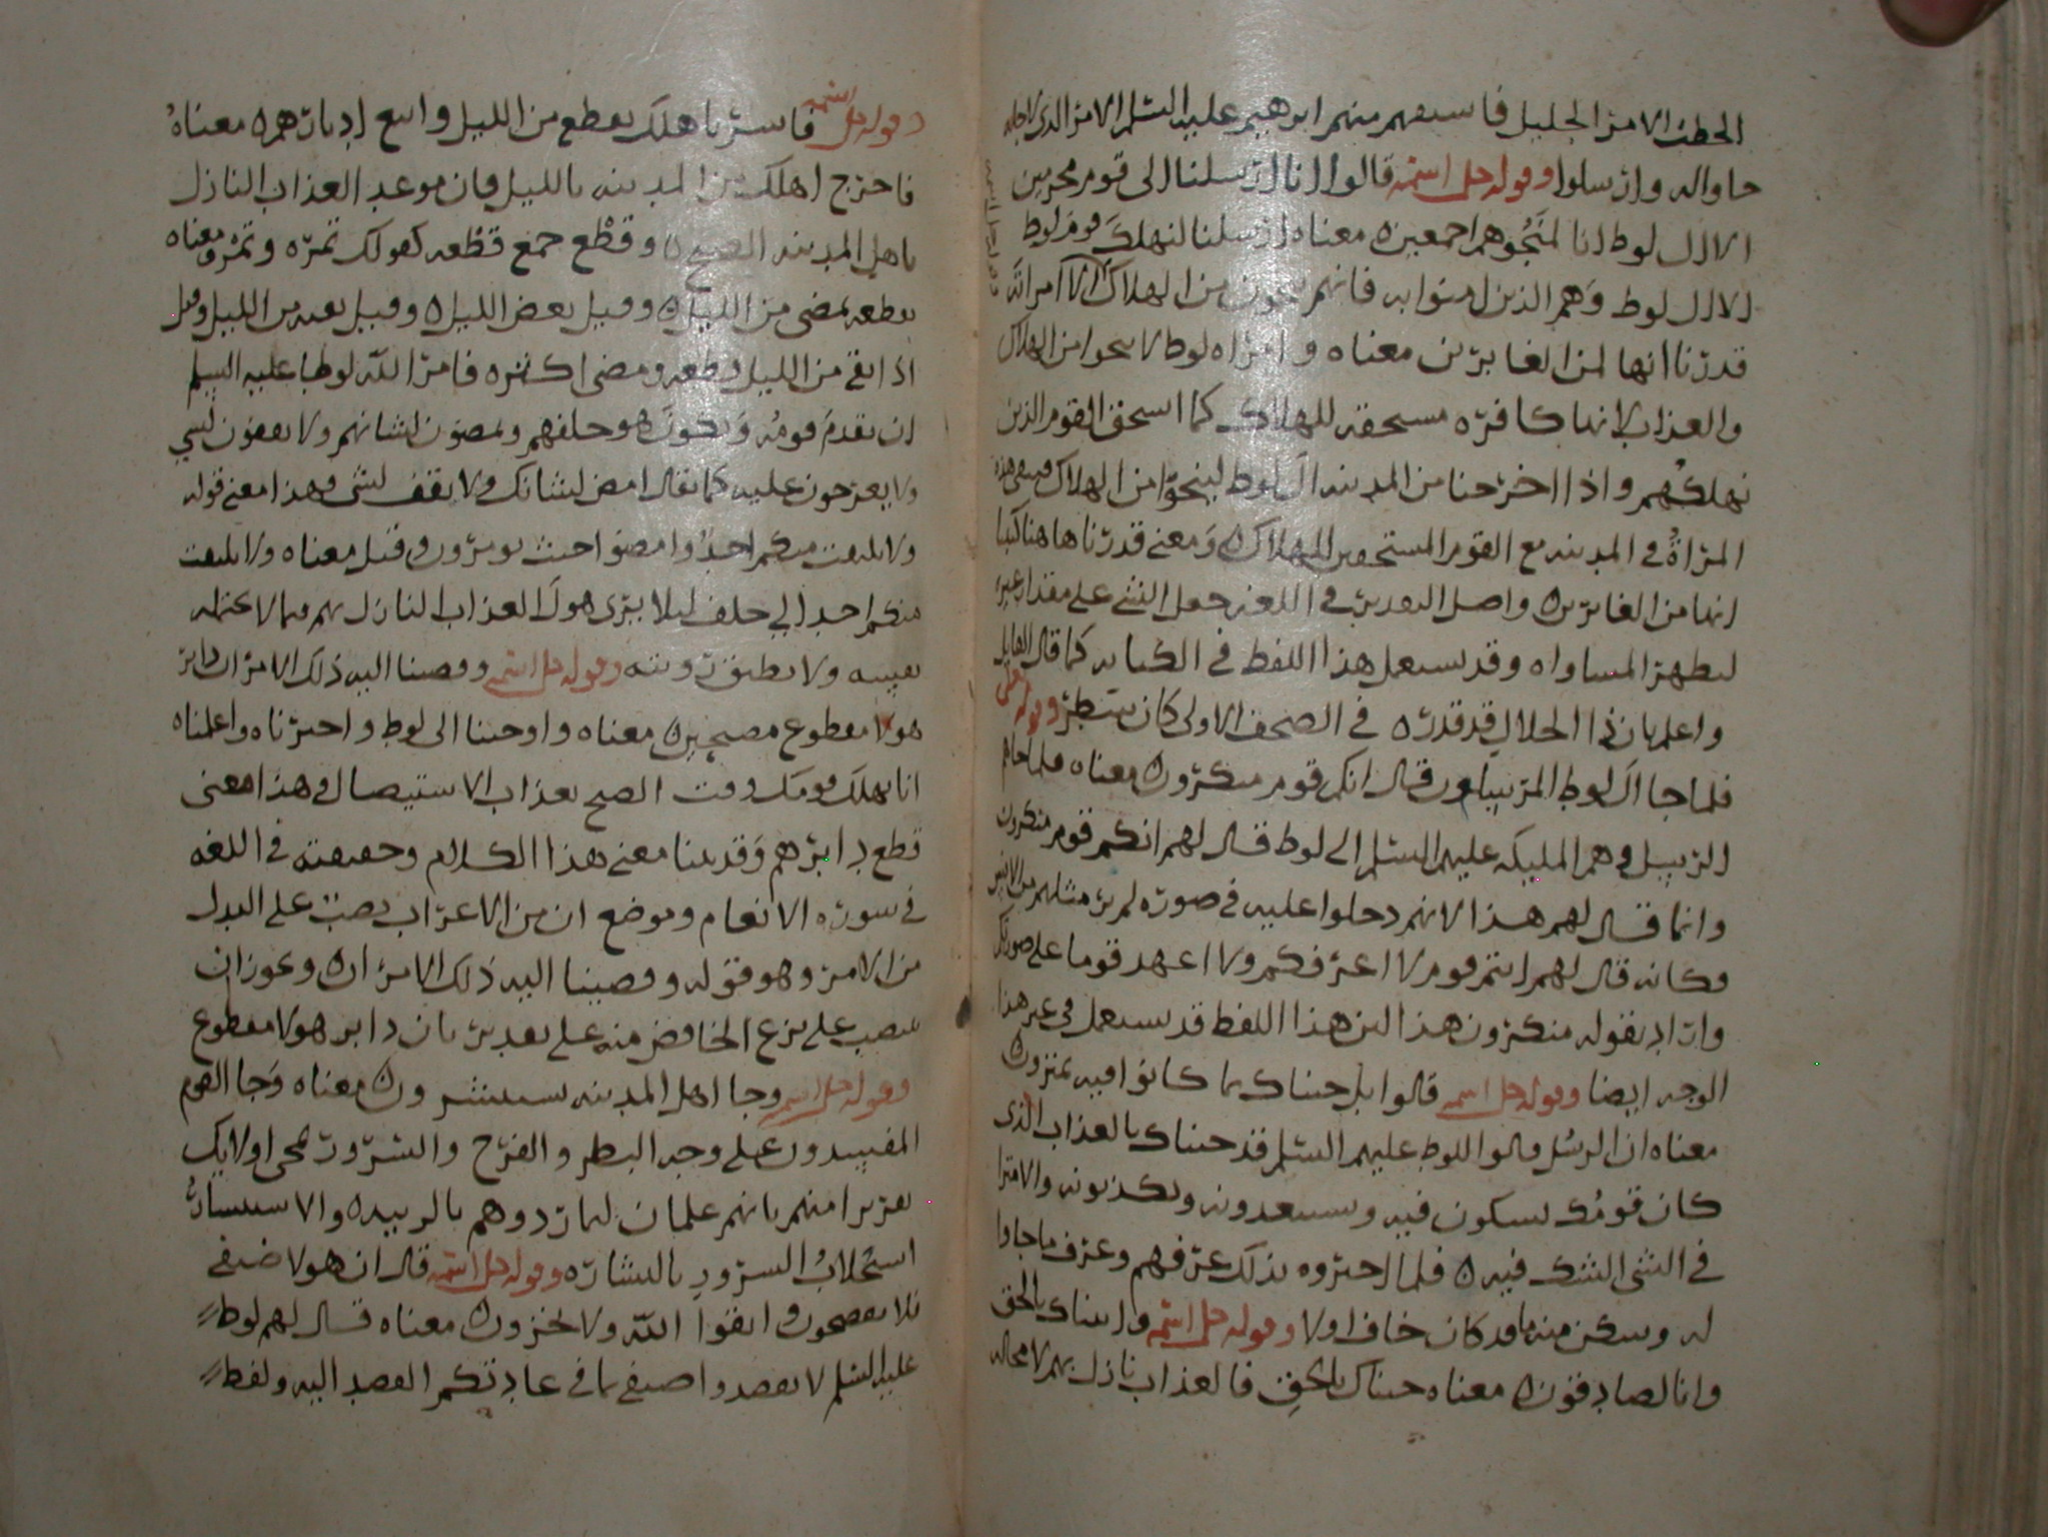 الخطب الامر الجليل فاستفهم منهم ابرهيم عليه السلم الامر الذي لاجله
جاواله وارسلوا وقوله جل اسمه قالوا انا ارسلنا الى قوم مجرمين
الا ال لوط انا لمنجوهم اجمعين معناه ارسلنا لنهلك قوم لوط
الا ال لوط وهم الذين امنوا به فانهم ينجون من الهلاك الا امراته
قدرنا انها لمن الغابرين معناه وامراه لوط لا تنجوا من الهلاك
والعذاب لانها كافره مستحقه للهلاك كما استحق القوم الذين
نهلكهم واذا اخرجنا من المدينه ال لوط لينجوا من الهلاك فتبقى هذه
المراة في المدينه مع القوم المستحقين للهلاك ومعنى قدرنا هاهنا كتبنا
انها من الغابرين واصل التقدير في اللغه جعل الشي على مقدار غيره
ليظهر المساواه وقد يستعمل هذا اللفظ في الكتابه كما قال القايل
واعلم بان ذا الجلال قد قدره في الصحف الاولى كان سطر وقوله تعالى
فلما جا ال لوط المرسلون قال انكم قوم منكرون معناه فلما جاهم
الرسل وهم المليكه عليهم السلم الى لوط قال لهم انكم قوم منكرون
وانما قال لهم هذا لانهم دخلوا عليه في صوره لم ير مثلهم من الانس
فكانه قال لهم انتم قوم لا اعرفكم ولا اعهد قوما على صورتكم
واراد بقوله منكرون هذا لان هذا اللفظ قد يستعمل في غير هذا
الوجه ايضا وقوله جل اسمه قالوا بل جيناك بما كانوا فيه يمترون
معناه ان الرسل قالوا للوط عليهم السلم قد جيناك بالعذاب الذي
كان قومك يشكون فيه ويستبعدونه ويكذبونه والامترا
في الشي الشك فيه فلما اخبروه بذلك عرفهم وعرف ما جاوا
له وسكن منه ما قد كان خاف اولا وقوله جل اسمه واتيناك بالحق
وانا لصادقون معناه جيناك بالحق فالعذاب نازل بهم لا محاله
وقوله جل اسمه فاسر باهلك بقطع من الليل واتبع ادبارهم معناه
فاخرج اهلك من المدينه بالليل فان موعد العذاب النازل
باهل المدينه الصبح وقطع جمع قطعه كقولك تمره وتمر ومعناه
بقطعه تمضى من الليل وقيل بعض الليل وقيل بقيه من الليل وقيل
اذا بقي من الليل قطعه ومضى اكثره فامر الله لوطا عليه السلم
ان يقدم قومه ويكون هو خلفهم ويمضون لشانهم ولا يقفون لشي
ولا يعرجون عليه كما يقال امض لشانك ولا تقف لشى وهذا معنى قوله
ولا يلتفت منكم احد وامضوا حيث تومرون وقيل معناه ولا يلتفت
منكم احد الى خلف ليلا يرى هول العذاب النازل بهم مما لا تحتمله
نفسه ولا يطيق رويته وقوله جل اسمه وقضينا اليه ذلك الامر ان دابر
هولا مقطوع مصبحين معناه واوحينا الى لوط واخبرناه واعلمناه
انا نهلك قومك وقت الصبح بعذاب الاستيصال وهذا معنى
قطع دابرهم وقد بينا معنى هذا الكلام وحقيقته في اللغه
في سوره الانعام وموضع ان من الاعراب نصب على البدل
من الامر وهو قوله وقضينا اليه ذلك الامر ان ويجوز ان
ينصب على نزع الخافض منه على تقدير بان دابر هولا مقطوع
وقوله جل اسمه وجا اهل المدينه يستبشرون معناه وجا القوم
المفسدون على وجه البطر والفرح والسرور بمجى اوليك
منهم بانهم غلمان لما ردوهم بالريبه والاستبشار
استجلاب السرور بالبشاره وقوله جل اسمه قال ان هولا ضيفي
فلا تفضحون واتقوا الله ولا تخزون معناه قال لهم لوط
عليه السلم لا تقصدوا ضيفي بما في عادتكم القصد اليه ولفظ